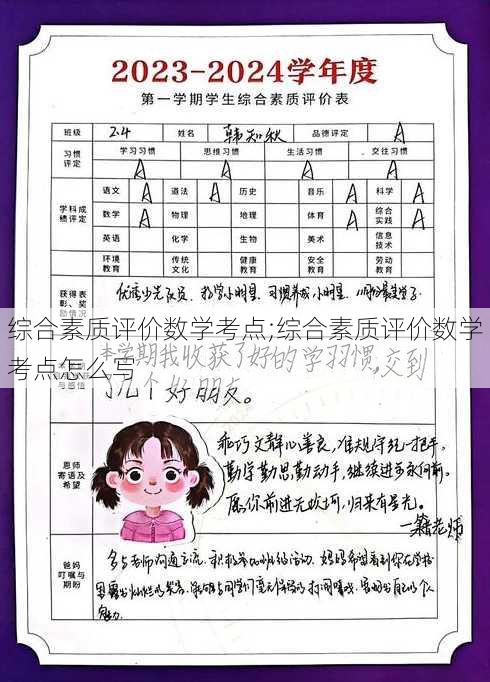 2023-2024学年度
第一学期学生综合素质评价表
班级 2.4 姓名 韩知秋 品德评定 A
习惯评定 学习习惯 思维习惯 生活习惯 交往习惯
A A A A
学科成绩评定 语文 A 道法 A 历史 音乐 A 科学 A
数学 A 物理 地理 体育 A 综合实践 A
英语 化学 生物 美术 信息技术
环境教育 传统文化 健康教育 安全教育 劳动教育
获得表彰、奖励情况 优秀少先队员、好学小明星、习惯养成小明星
综合素质评价数学考点;综合素质评价数学
考点怎么写
本学期我收获了好的学习习惯,交到
了几个好朋友。
与感悟
恩师寄语及希望
乖巧文静心善良,准规守纪一把手。
勤学勤思勤动手,继续进步永向前。
愿你前进无坎坷,归来有星光。
一籍老师
爸妈叮嘱与期盼
多与老师沟通交流、积极参加班级活动、妈妈希望看到你在学校
魅力.